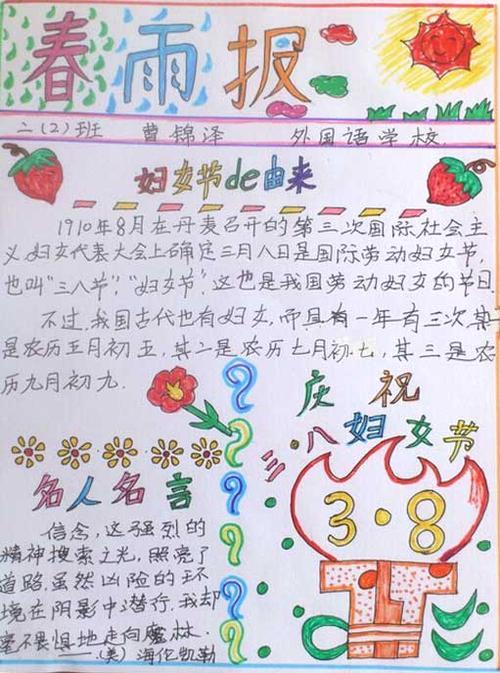 春雨报
二(2)班 曹锦泽 外国语学校
妇女节de由来
1910年8月在丹麦召开的第三次国际社会主
义妇女代表大会上确定三月八日是国际劳动妇女节,
也叫“三八节”,“妇女节”.这也是我国劳动妇女的节日.
不过,我国古代也有妇女,而且有一年有三次其一
是农历五月初五,其二是农历七月初七,其三是农
历九月初九.
庆祝
三·八妇女节
3·8
名人名言
信念,这强烈的
精神搜索之光,照亮了
道路,虽然凶险的环
境在阴影中潜行,我却
毫不畏惧地走向魔林.
——(美)海伦凯勒